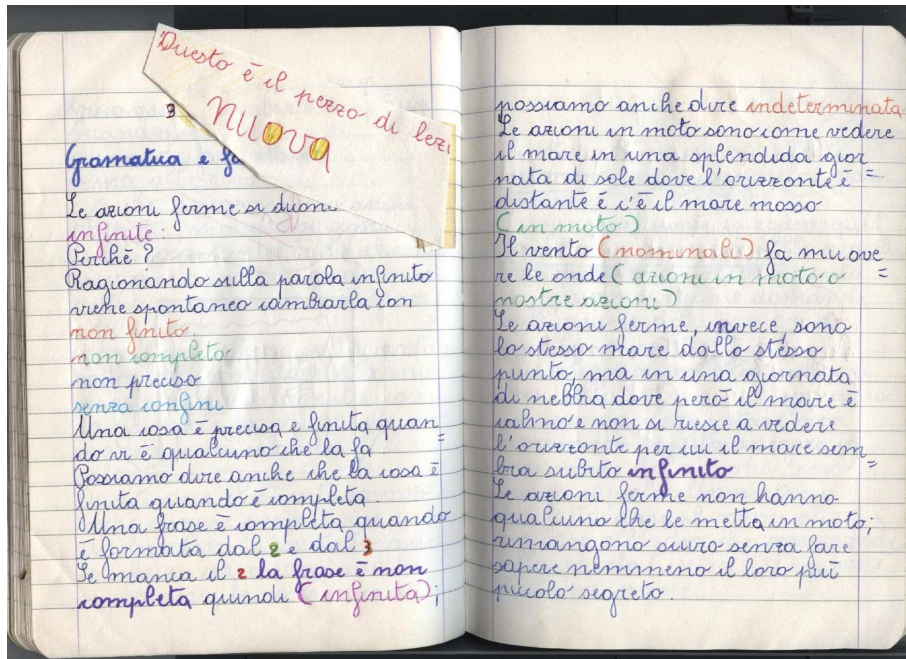 Questo è il pezzo di lezi
nuova
3
Gramatica e
Le azioni ferme si dicono
infinite:
Perchè?
Ragionando sulla parola infinito
viene spontaneo cambiarla con
non finito
non completo
non preciso
senza confini
Una cosa è precisa e finita quan
do vi è qualcuno che la fa.
Possiamo dire anche che la cosa è
finita quando è completa
Una frase è completa quando
è formata dal 2 e dal 3
Se manca il 2 la frase è non
completa quindi (infinita);
possiamo anche dire indeterminata.
Le azioni in moto sono come vedere
il mare in una splendida gior
nata di sole dove l'orizzonte è
distante è c'è il mare mosso
(in moto)
Il vento (nominali) fa muove
re le onde (azioni in moto o
nostre azioni)
Le azioni ferme, invece, sono
lo stesso mare dallo stesso
punto, ma in una giornata
di nebbia dove però il mare è
calmo e non si riesce a vedere
l'orizzonte per cui il mare sem
bra subito infinito
Le azioni ferme non hanno
qualcuno che le metta in moto;
rimangono scuro senza fare
sapere nemmeno il loro più
piccolo segreto.